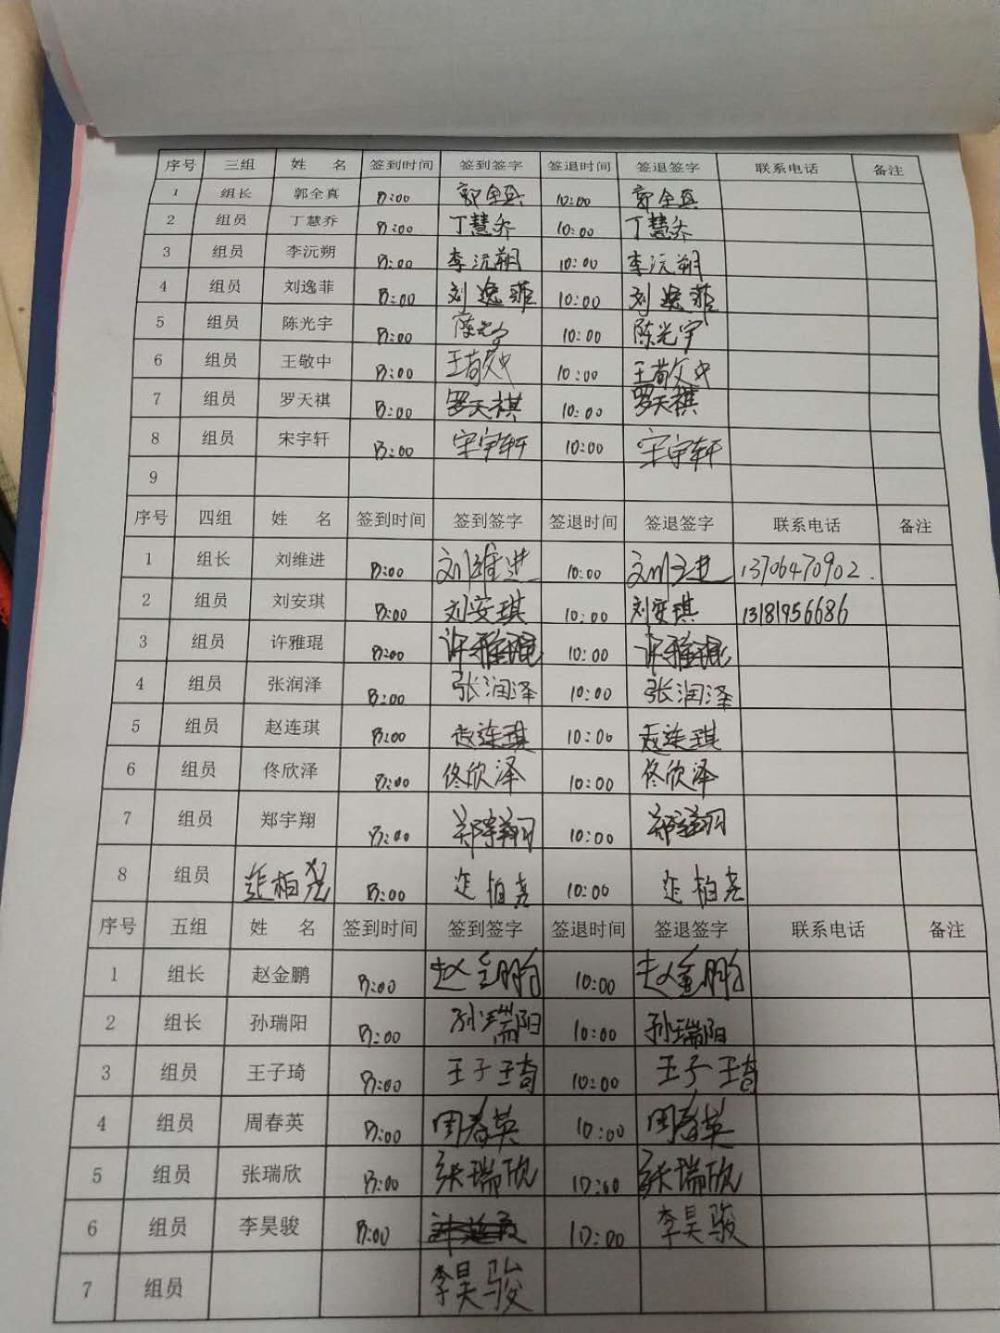 序号 三组 姓 名 签到时间 签到签字 签退时间 签退签字 联系电话 备注
1 组长 郭全真 8:00 郭全真 10:00 郭全真
2 组员 丁慧乔 8:00 丁慧乔 10:00 丁慧乔
3 组员 李沅朔 8:00 李沅朔 10:00 李沅朔
4 组员 刘逸菲 8:00 刘逸菲 10:00 刘逸菲
5 组员 陈光宇 8:00 陈光宇 10:00 陈光宇
6 组员 王敬中 8:00 王敬中 10:00 王敬中
7 组员 罗天祺 8:00 罗天祺 10:00 罗天祺
8 组员 宋宇轩 8:00 宋宇轩 10:00 宋宇轩
9
序号 四组 姓 名 签到时间 签到签字 签退时间 签退签字 联系电话 备注
1 组长 刘维进 8:00 刘维进 10:00 刘维进 13706470902.
2 组员 刘安琪 8:00 刘安琪 10:00 刘安琪 13181956686
3 组员 许雅琨 8:00 许雅琨 10:00 许雅琨
4 组员 张润泽 8:00 张润泽 10:00 张润泽
5 组员 赵连琪 8:00 赵连琪 10:00 赵连琪
6 组员 佟欣泽 8:00 佟欣泽 10:00 佟欣泽
7 组员 郑宇翔 8:00 郑宇翔 10:00 郑宇翔
8 组员 延柏尧 8:00 延柏尧 10:00 延柏尧
序号 五组 姓 名 签到时间 签到签字 签退时间 签退签字 联系电话 备注
1 组长 赵金鹏 8:00 赵金鹏 10:00 赵金鹏
2 组长 孙瑞阳 8:00 孙瑞阳 10:00 孙瑞阳
3 组员 王子琦 8:00 王子琦 10:00 王子琦
4 组员 周春英 8:00 周春英 10:00 周春英
5 组员 张瑞欣 8:00 张瑞欣 10:00 张瑞欣
6 组员 李昊骏 8:00 10:00 李昊骏
7 组员 李昊骏